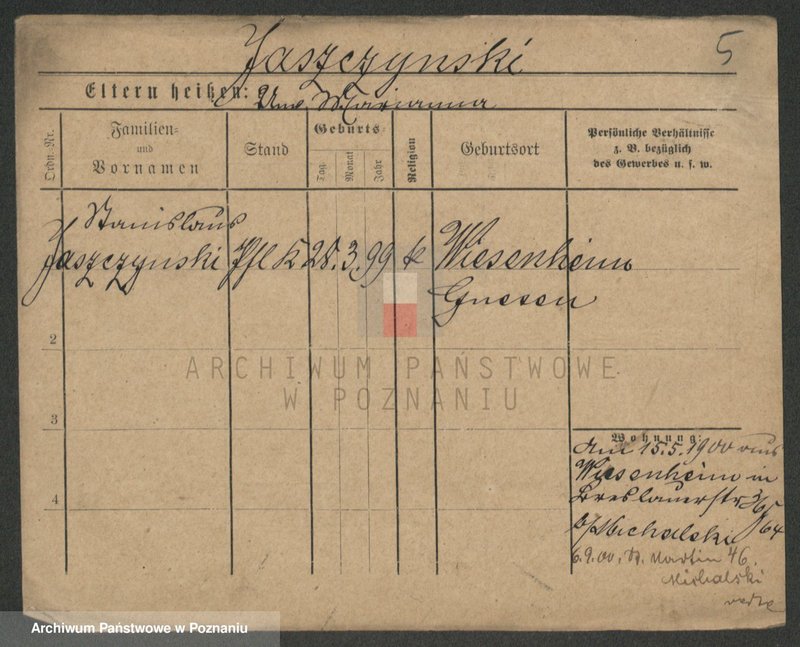 Jaszczynski
5
Eltern heißen: Unv. Marianna
Ordn.-Nr.
Familien-
und
Vornamen
Stand
Geburts-
Tag
Monat
Jahr
Religion
Geburtsort
Persönliche Verhältnisse
z. B. bezüglich
des Gewerbes u. s. w.
Stanislaus
Jaszczynski Pfl K 28. 3. 99 k Wiesenheim
Gnesen
2
ARCHIWUM PAŃSTWOWE
W POZNANIU
3
4
Wohnung:
Am 15.5.1900 aus
Wiesenheim in
Breslauerstr
b/Michalski 64
6.9.00, St. Martin 46
Michalski
Archiwum Państwowe w Poznaniu